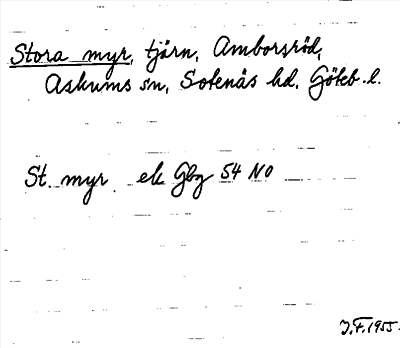 Stora myr, tjärn, Amborsröd,
Askums sn, Sotenäs hd. Göteb. l.
St. myr ek Gbg 54 NO
J.F. 1955.